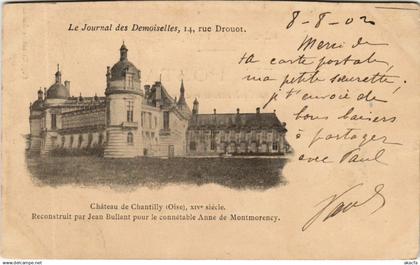 Le Journal des Demoiselles, 14, rue Drouot.
8-8-02
Merci de
ta carte postale
ma petite sœurette.
Je t'envoie de
bons baisers
à partager
avec Paul
Château de Chantilly (Oise), XIVe siècle.
Reconstruit par Jean Bullant pour le connétable Anne de Montmorency.